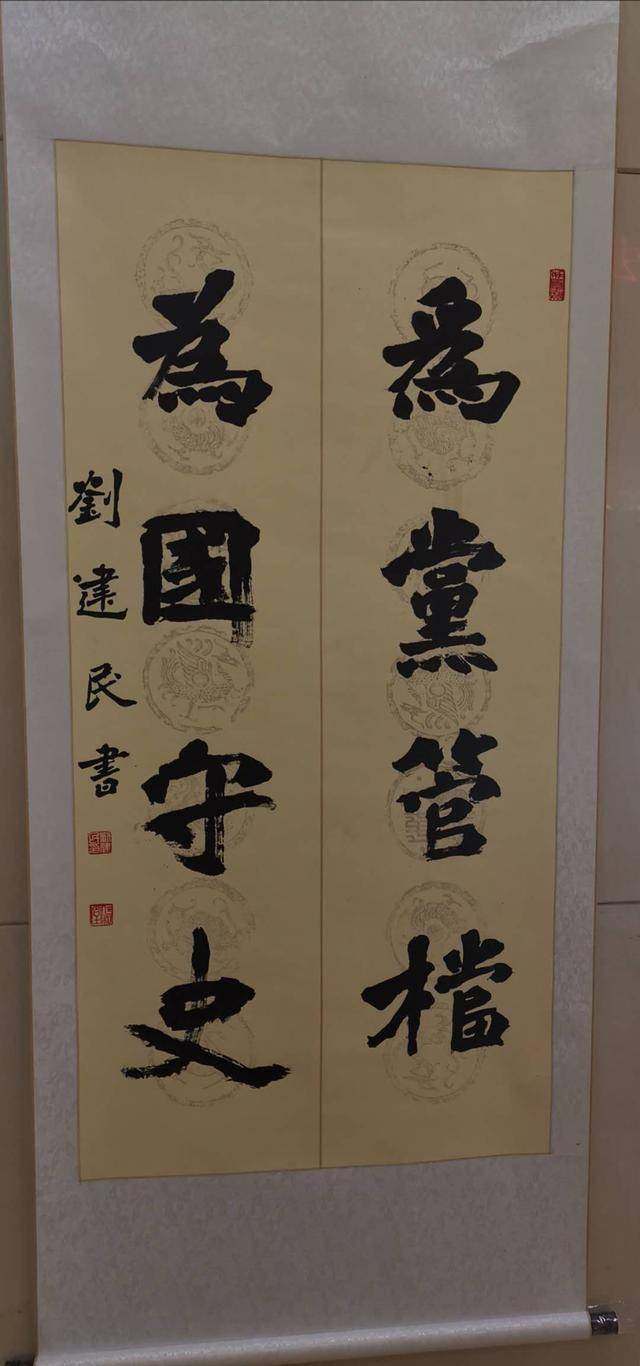 爲黨管檔
為國守史
劉建民書